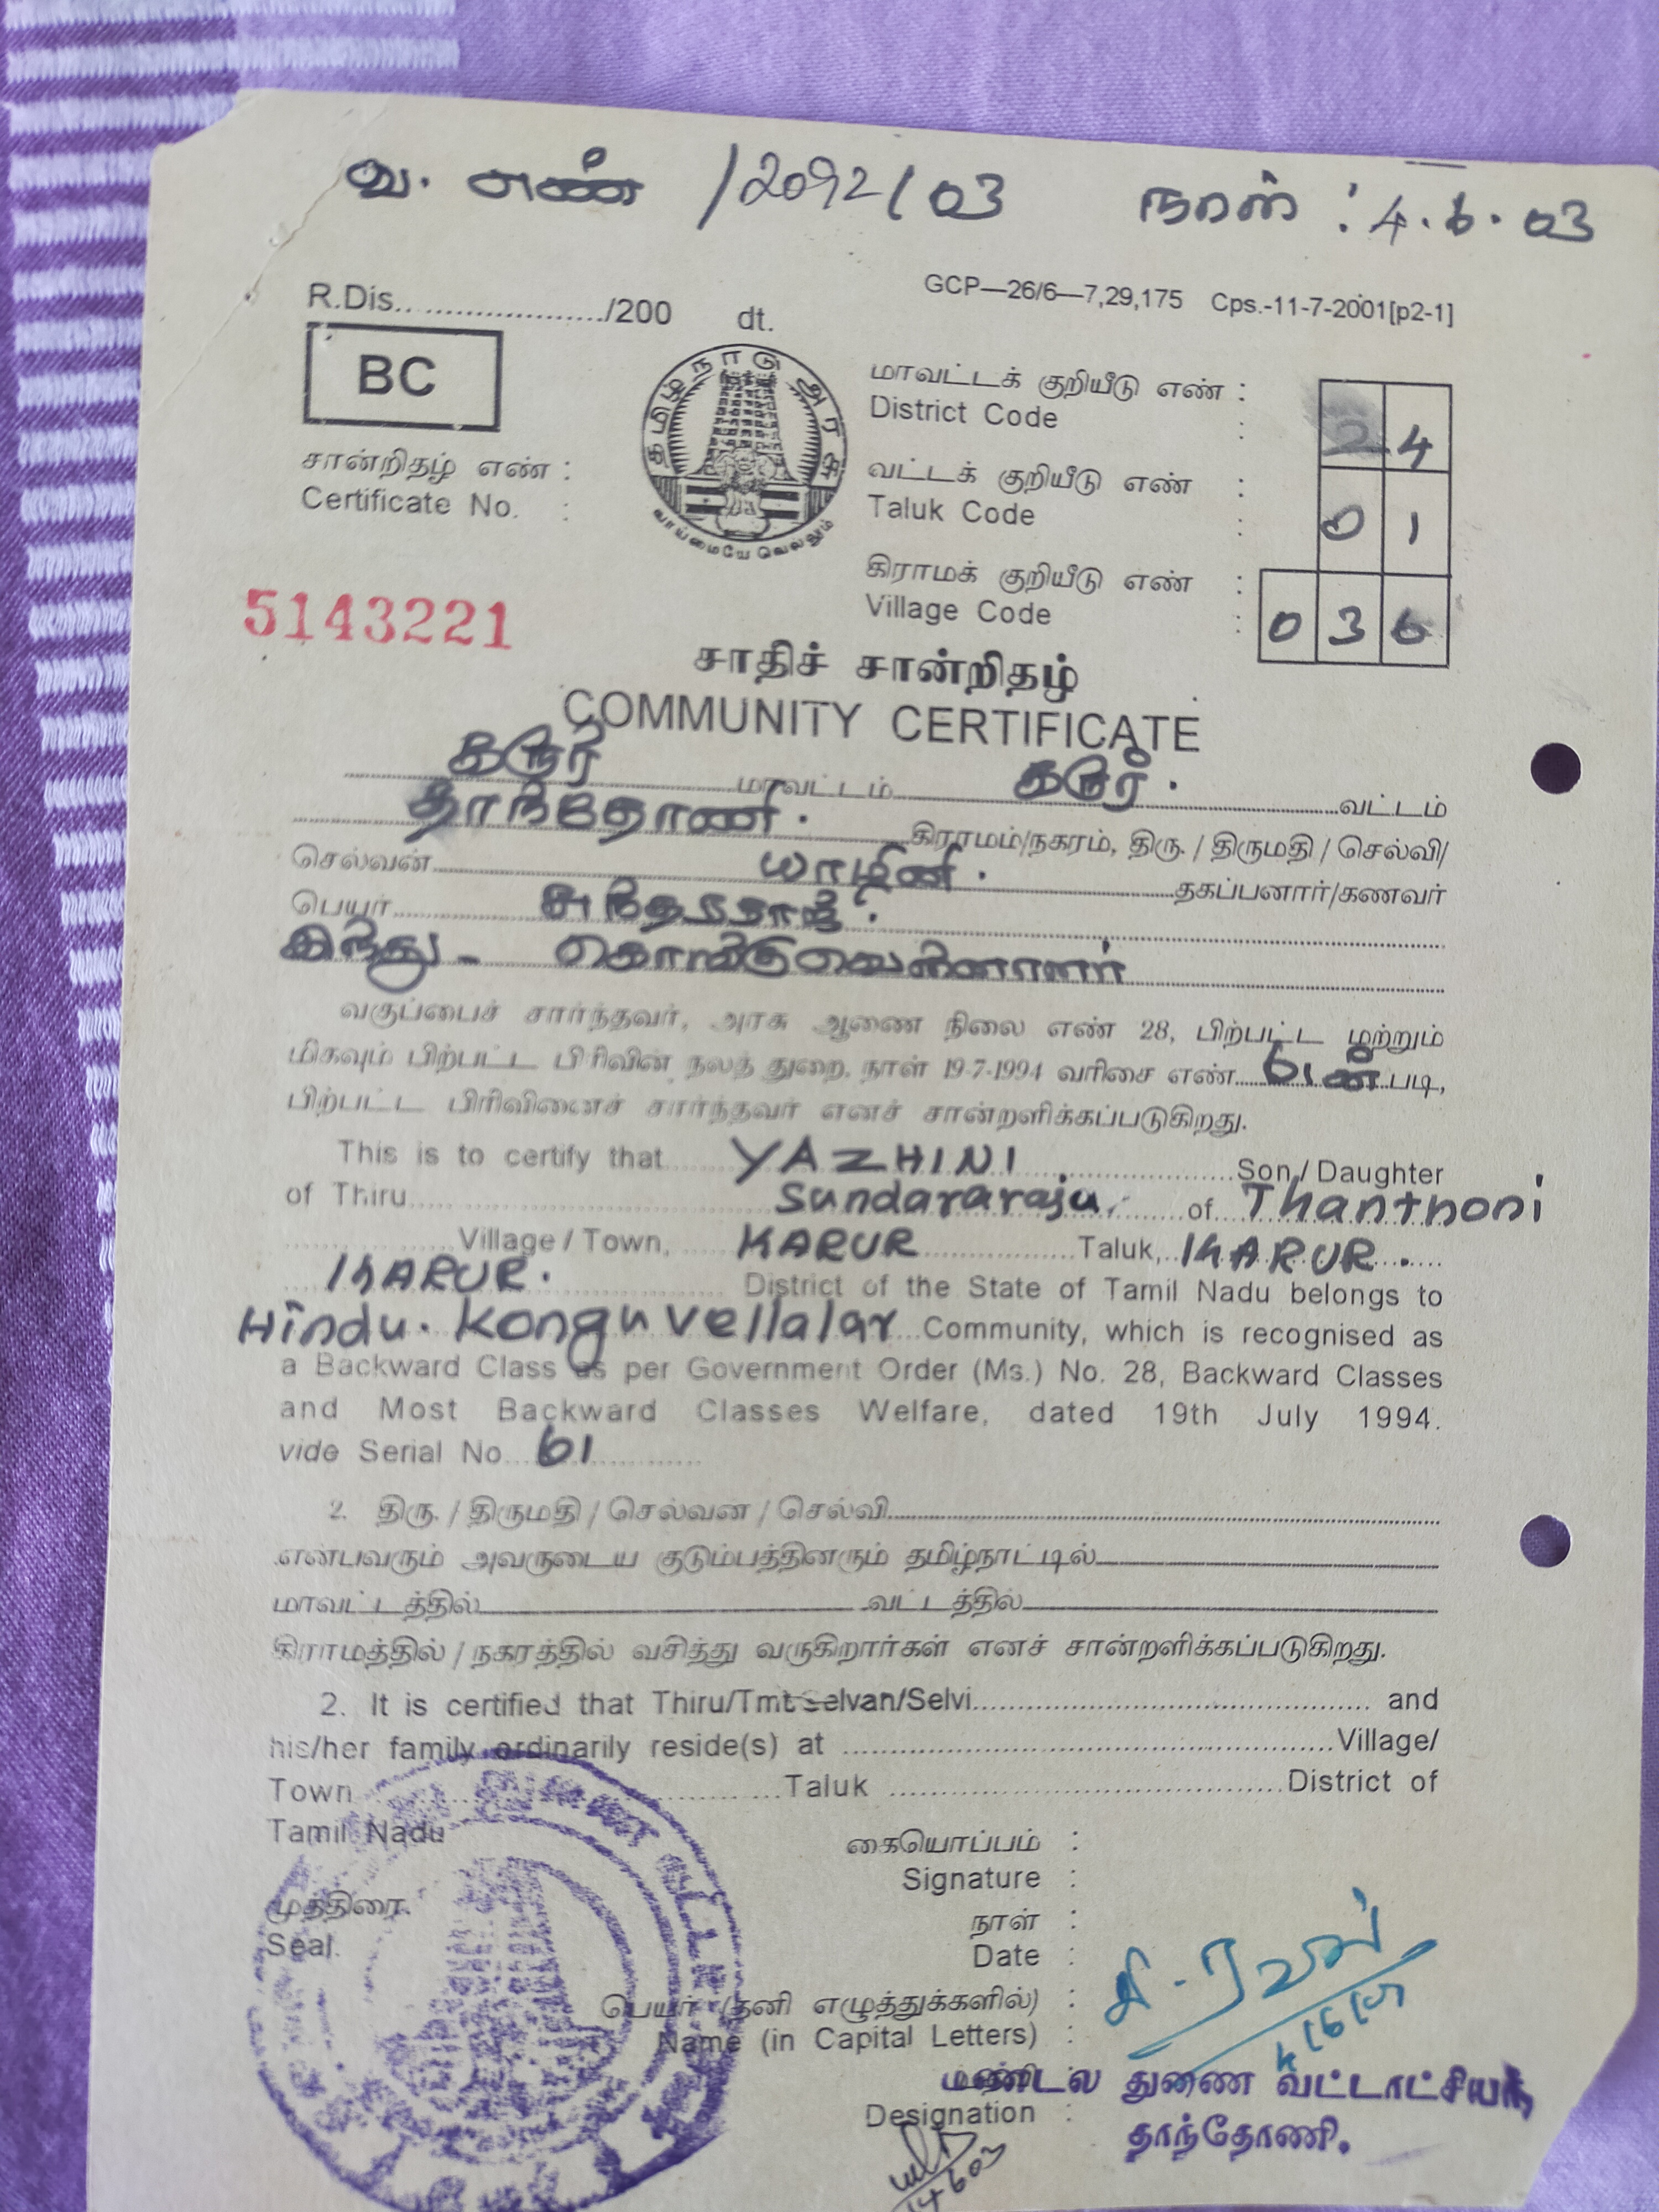 வ. எண் /2092/03 நாள் : 4.6.03
GCP—26/6—7,29,175 Cps.-11-7-2001[p2-1]
R.Dis....................../200 dt.
BC
தமிழ்நாடு அரசு
வாய்மையே வெல்லும்
மாவட்டக் குறியீடு எண் :
District Code : 24
சான்றிதழ் எண் :
Certificate No. :
வட்டக் குறியீடு எண் :
Taluk Code : 01
கிராமக் குறியீடு எண் :
Village Code : 036
5143221
சாதிச் சான்றிதழ்
COMMUNITY CERTIFICATE
கரூர் மாவட்டம் கரூர். வட்டம்
தாந்தோணி. கிராமம்/நகரம், திரு. / திருமதி / செல்வி/
செல்வன் யாழினி. தகப்பனார்/கணவர்
பெயர்
இந்து - கொங்குவெள்ளாளர்
வகுப்பைச் சார்ந்தவர், அரசு ஆணை நிலை எண் 28, பிற்பட்ட மற்றும்
மிகவும் பிற்பட்ட பிரிவின் நலத் துறை, நாள் 19-7-1994 வரிசை எண் 61ன் படி,
பிற்பட்ட பிரிவினைச் சார்ந்தவர் எனச் சான்றளிக்கப்படுகிறது.
This is to certify that YAZHINI Son / Daughter
of Thiru Sundararaju, of Thanthoni
Village / Town, KARUR Taluk, KARUR.
KARUR. District of the State of Tamil Nadu belongs to
Hindu. Kongu vellalar Community, which is recognised as
a Backward Class as per Government Order (Ms.) No. 28, Backward Classes
and Most Backward Classes Welfare, dated 19th July 1994.
vide Serial No 61
2. திரு. / திருமதி / செல்வன் / செல்வி
என்பவரும் அவருடைய குடும்பத்தினரும் தமிழ்நாட்டில்
மாவட்டத்தில் வட்டத்தில்
கிராமத்தில் / நகரத்தில் வசித்து வருகிறார்கள் எனச் சான்றளிக்கப்படுகிறது.
2. It is certified that Thiru/Tmt Selvan/Selvi and
his/her family ordinarily reside(s) at Village/
Town Taluk District of
Tamil Nadu
கையொப்பம் :
Signature :
முத்திரை.
Seal.
நாள் :
Date :
பெயர் (தனி எழுத்துக்களில்) :
Name (in Capital Letters) :
மண்டல துணை வட்டாட்சியர்,
Designation :
தாந்தோணி.